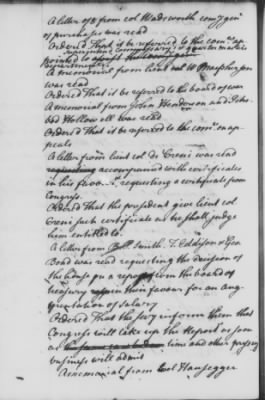 A letter of 8 from col Wadsworth comy genl
of purchases was read
Ordered That it be referred to the comee ap
pointed to
superintend commissary's & quarter master's
departments
A memorial from lieut col W
was read
Ordered That it be referred to the board of war
A memorial from John Henderson and Jehs
bod Hollowell was read
Ordered That it be referred to the comee on ap
peals
A letter from lieut col de Creni was read
accompanied with certificates
in his favor requesting a certificate from
Congress
Ordered That the president give lieut col
Creni such certificate as he shall judge
him entitled to.
A letter from Bell. Smith. T. Eddison & Geo
Bond was read requesting the decision of
the Congs on a report from the board of
treasury in their favour for an aug
mentation of salary
Ordered That the secy inform them that
Congress will take up the Report as soon
as time and other pressing
business will admit
A memorial from col Hausegger